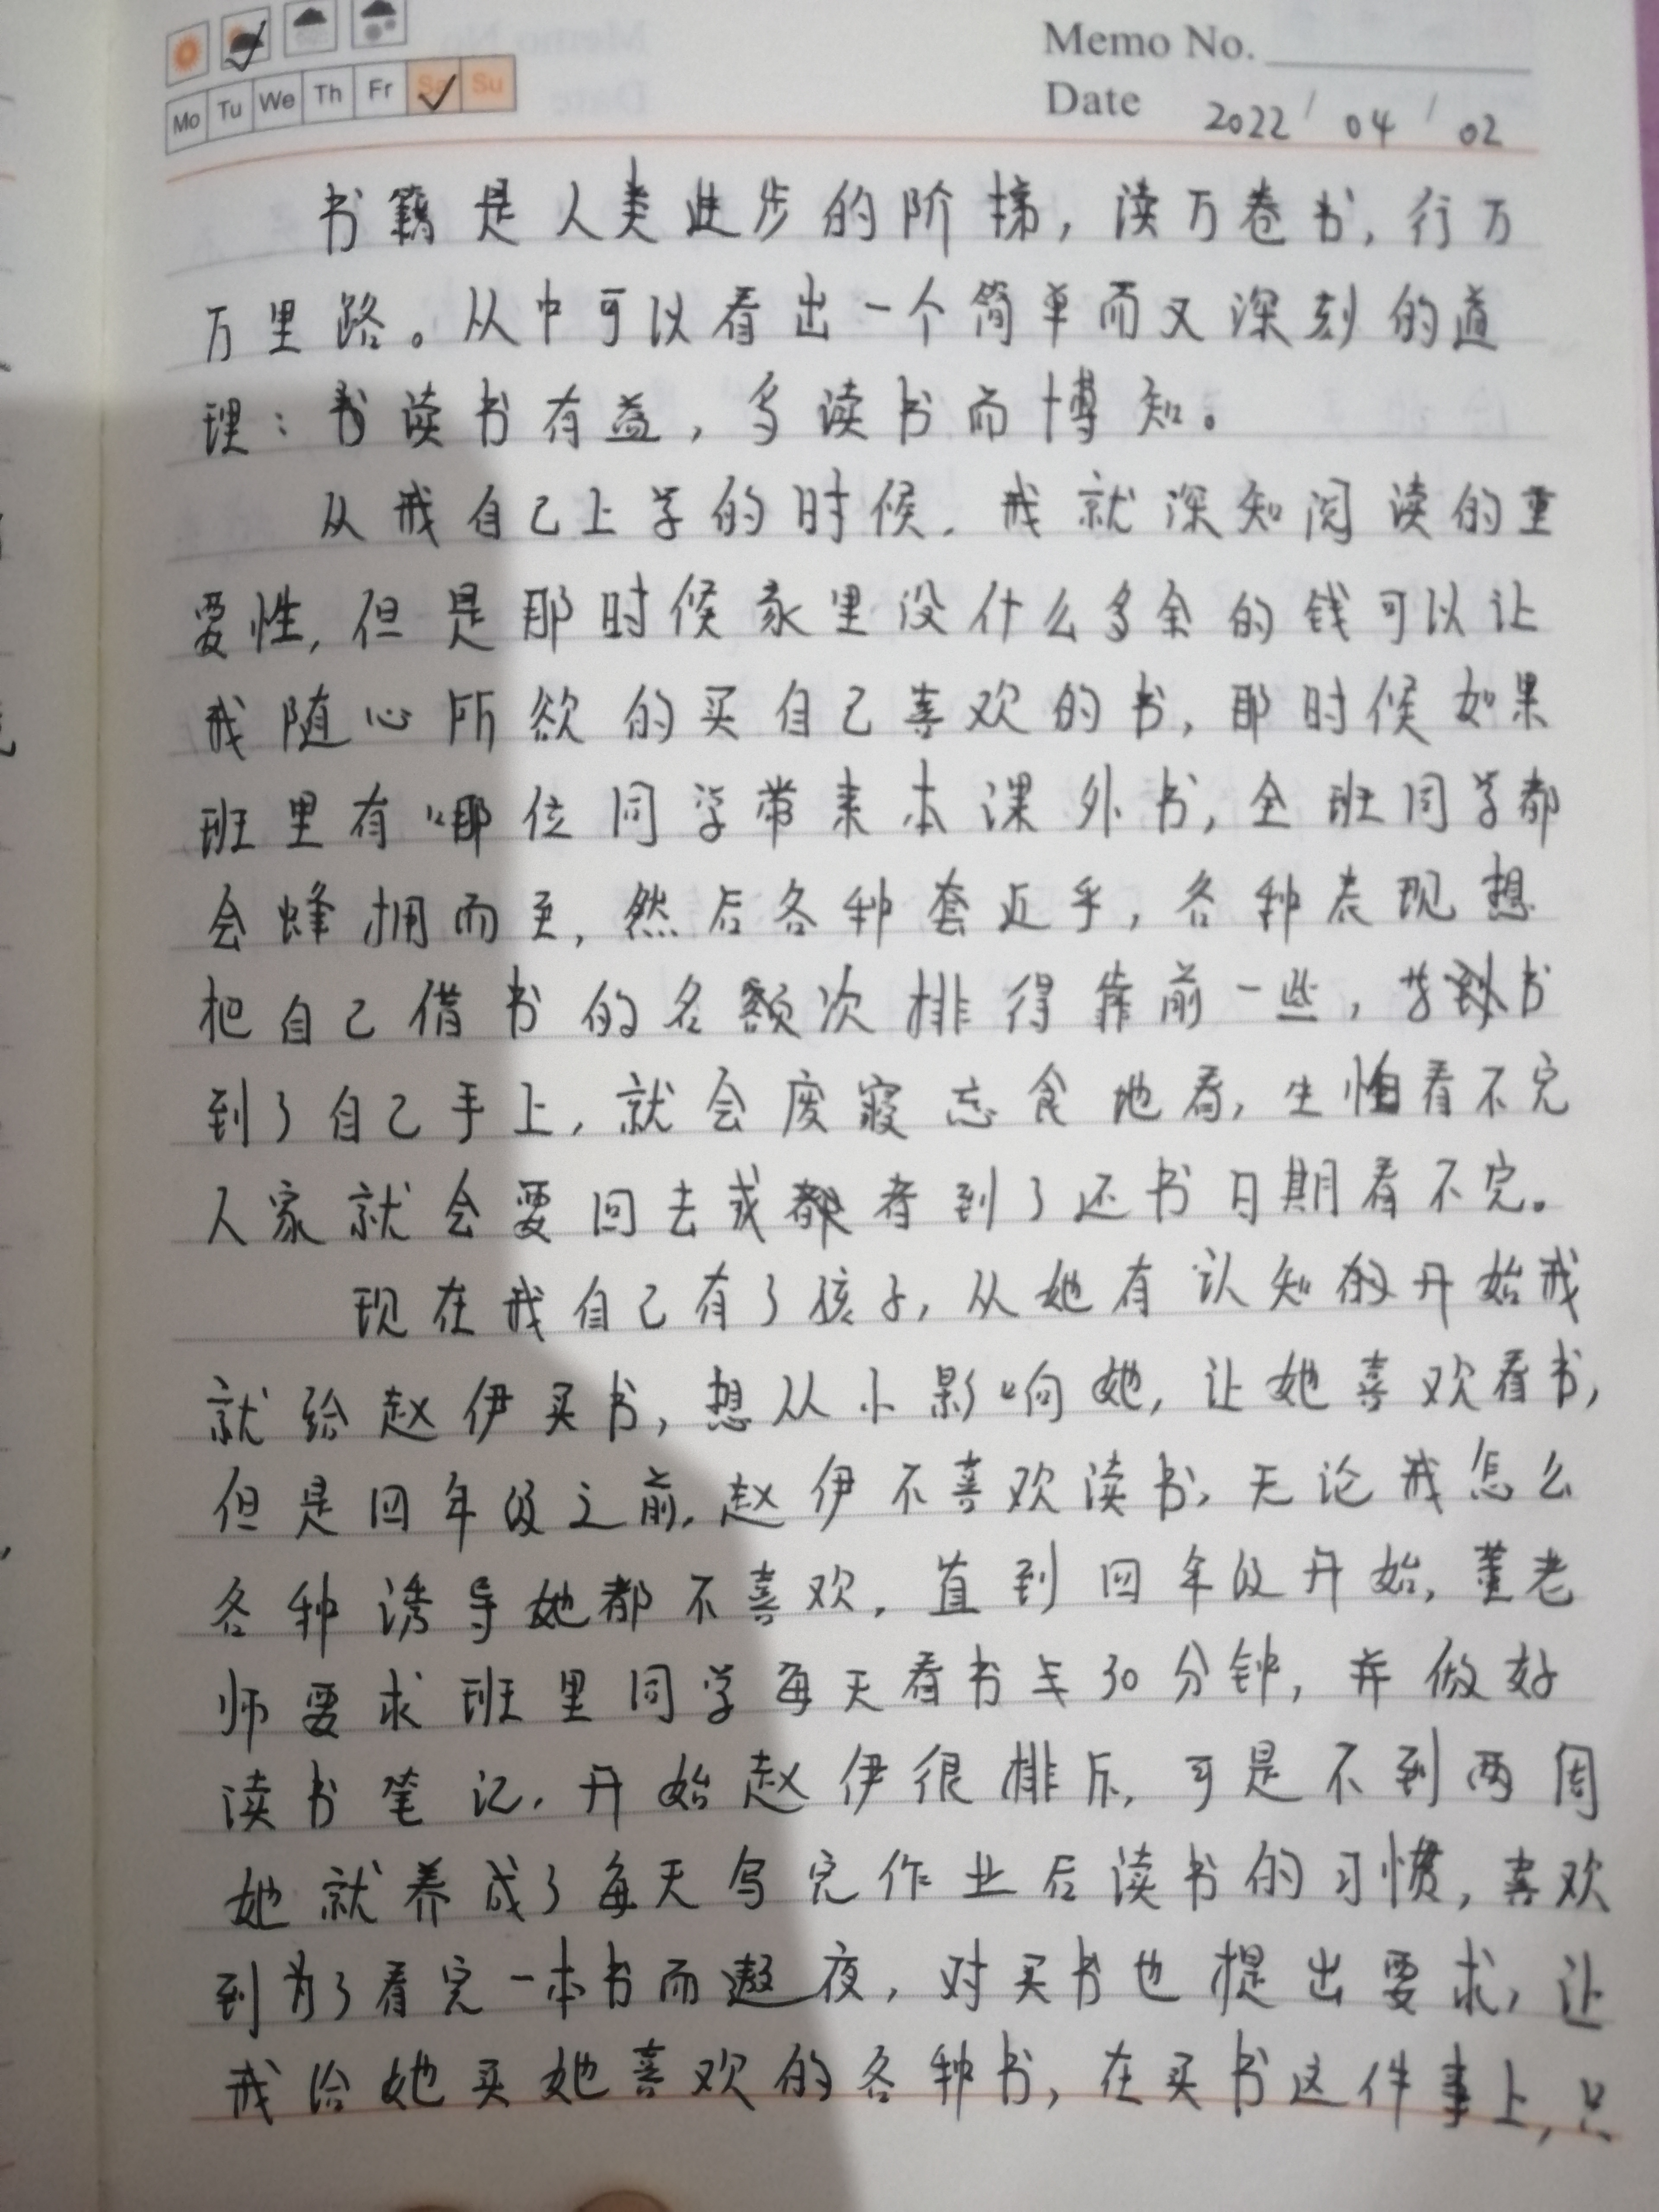 Memo No.
Mo Tu We Th Fr Sa Su
Date 2022/04/02
书籍是人类进步的阶梯，读万卷书，行万
万里路。从中可以看出一个简单而又深刻的道
理：书读书有益，多读书而博知。
从我自己上学的时候，我就深知阅读的重
要性，但是那时候家里没什么多余的钱可以让
我随心所欲的买自己喜欢的书，那时候如果
班里有哪位同学带来本课外书，全班同学都
会蜂拥而至，然后各种套近乎，各种表现想
把自己借书的名额次排得靠前一些，书
到了自己手上，就会废寝忘食地看，生怕看不完
人家就会要回去或者到了还书日期看不完。
现在我自己有了孩子，从她有认知的开始我
就给赵伊买书，想从小影响她，让她喜欢看书，
但是四年级之前，赵伊不喜欢读书，无论我怎么
各种诱导她都不喜欢，直到四年级开始，董老
师要求班里同学每天看书30分钟，并做好
读书笔记，开始赵伊很排斥，可是不到两周
她就养成了每天写完作业后读书的习惯，喜欢
到为了看完一本书而遨夜，对买书也提出要求，让
我给她买她喜欢的各种书，在买书这件事上，只